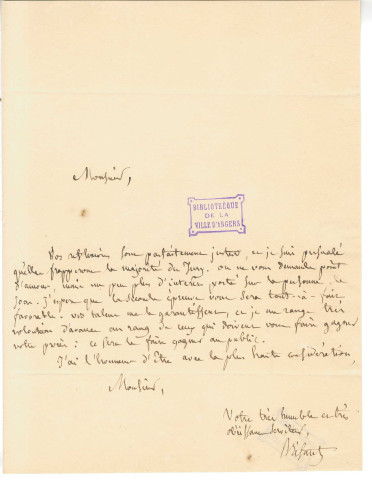 Monsieur,
BIBLIOTHÈQUE
DE LA
VILLE D'ANGERS
Vos réflexions sont parfaitement justes, et je suis persuadé
qu'elles frapperont la majorité du Jury. on ne vous demande point
d'amour, mais un peu plus d'intérêt porté sur la personne de
Jean. j'espère que la seconde épreuve vous sera tout-à-fait
favorable : vos talens me le garantissent, et je me range très
volontiers d'avance au rang de ceux qui doivent vous faire gagner
votre procès : ce sera le faire gagner au public.
J'ai l'honneur d'être avec la plus haute considération,
Monsieur,
Votre très humble et très
obéissant serviteur,